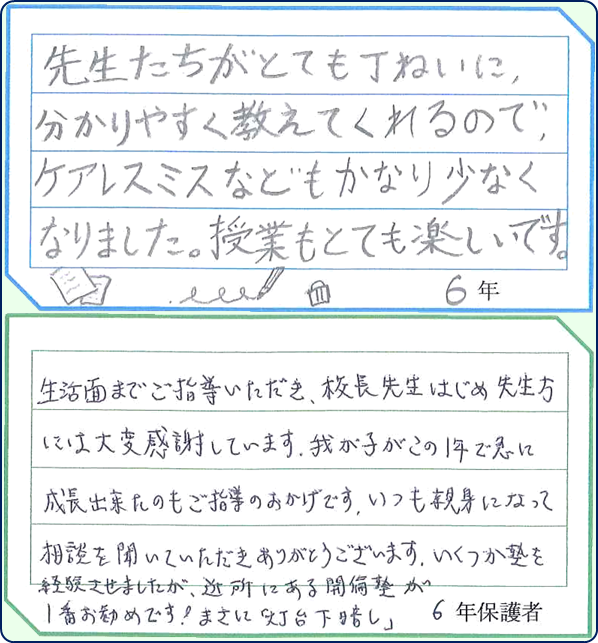 先生たちがとても丁ねいに,
分かりやすく教えてくれるので,
ケアレスミスなどもかなり少なく
なりました。授業もとても楽しいです。
6年
生活面までご指導いただき、校長先生はじめ先生方
には大変感謝しています。我が子がこの1年で急に
成長出来たのもご指導のおかげです。いつも親身になって
相談を聞いていただきありがとうございます。いくつか塾を
経験させましたが、近所にある開倫塾が
1番お勧めです!まさに「灯台下暗し」
6年保護者